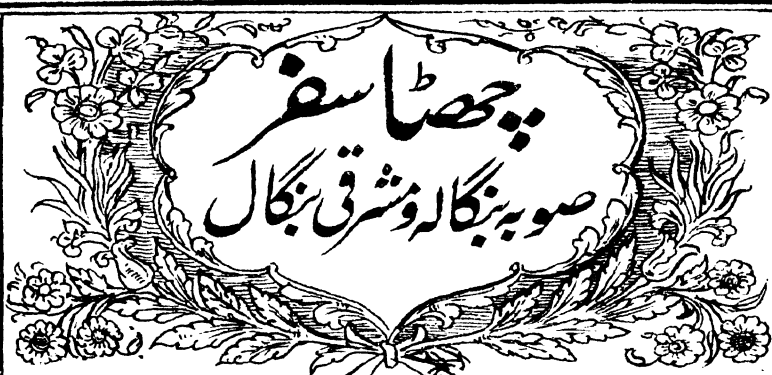 چھٹا سفر
صوبہ بنگالہ و مشرقی بنگال